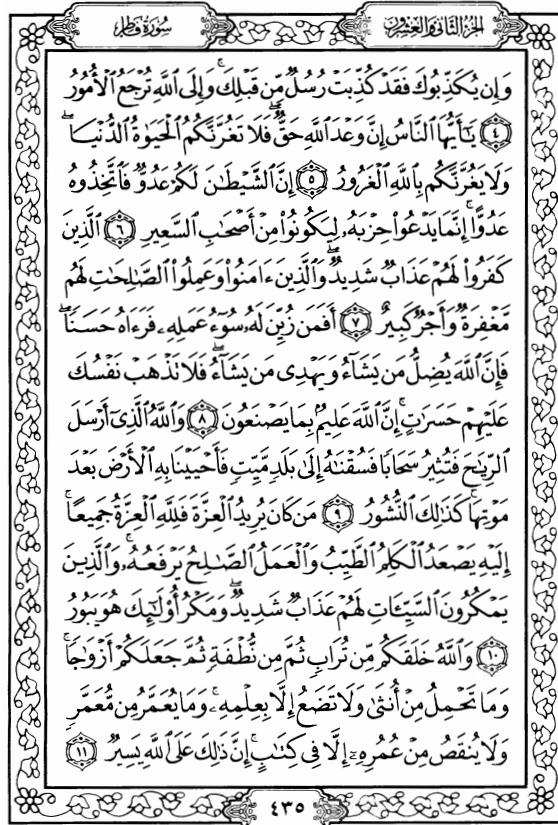 سُورَةُ فَاطِرٍ الجُزءُ الثَّانِي وَالعِشرُونَ
وَإِن يُكَذِّبُوكَ فَقَدْ كُذِّبَتْ رُسُلٌ مِّن قَبْلِكَ ۚ وَإِلَى ٱللَّهِ تُرْجَعُ ٱلْأُمُورُ
٤ يَٰٓأَيُّهَا ٱلنَّاسُ إِنَّ وَعْدَ ٱللَّهِ حَقٌّ ۖ فَلَا تَغُرَّنَّكُمُ ٱلْحَيَوٰةُ ٱلدُّنْيَا ۖ
وَلَا يَغُرَّنَّكُم بِٱللَّهِ ٱلْغَرُورُ ٥ إِنَّ ٱلشَّيْطَٰنَ لَكُمْ عَدُوٌّ فَٱتَّخِذُوهُ
عَدُوًّا ۚ إِنَّمَا يَدْعُوا۟ حِزْبَهُۥ لِيَكُونُوا۟ مِنْ أَصْحَٰبِ ٱلسَّعِيرِ ٦ ٱلَّذِينَ
كَفَرُوا۟ لَهُمْ عَذَابٌ شَدِيدٌ ۖ وَٱلَّذِينَ ءَامَنُوا۟ وَعَمِلُوا۟ ٱلصَّٰلِحَٰتِ لَهُم
مَّغْفِرَةٌ وَأَجْرٌ كَبِيرٌ ٧ أَفَمَن زُيِّنَ لَهُۥ سُوٓءُ عَمَلِهِۦ فَرَءَاهُ حَسَنًا ۖ
فَإِنَّ ٱللَّهَ يُضِلُّ مَن يَشَآءُ وَيَهْدِى مَن يَشَآءُ ۖ فَلَا تَذْهَبْ نَفْسُكَ
عَلَيْهِمْ حَسَرَٰتٍ ۚ إِنَّ ٱللَّهَ عَلِيمٌۢ بِمَا يَصْنَعُونَ ٨ وَٱللَّهُ ٱلَّذِىٓ أَرْسَلَ
ٱلرِّيَٰحَ فَتُثِيرُ سَحَابًا فَسُقْنَٰهُ إِلَىٰ بَلَدٍ مَّيِّتٍ فَأَحْيَيْنَا بِهِ ٱلْأَرْضَ بَعْدَ
مَوْتِهَا ۚ كَذَٰلِكَ ٱلنُّشُورُ ٩ مَن كَانَ يُرِيدُ ٱلْعِزَّةَ فَلِلَّهِ ٱلْعِزَّةُ جَمِيعًا ۚ
إِلَيْهِ يَصْعَدُ ٱلْكَلِمُ ٱلطَّيِّبُ وَٱلْعَمَلُ ٱلصَّٰلِحُ يَرْفَعُهُۥ ۚ وَٱلَّذِينَ
يَمْكُرُونَ ٱلسَّيِّـَٔاتِ لَهُمْ عَذَابٌ شَدِيدٌ ۖ وَمَكْرُ أُو۟لَٰٓئِكَ هُوَ يَبُورُ
١٠ وَٱللَّهُ خَلَقَكُم مِّن تُرَابٍ ثُمَّ مِن نُّطْفَةٍ ثُمَّ جَعَلَكُمْ أَزْوَٰجًا ۚ
وَمَا تَحْمِلُ مِنْ أُنثَىٰ وَلَا تَضَعُ إِلَّا بِعِلْمِهِۦ ۚ وَمَا يُعَمَّرُ مِن مُّعَمَّرٍ
وَلَا يُنقَصُ مِنْ عُمُرِهِۦٓ إِلَّا فِى كِتَٰبٍ ۚ إِنَّ ذَٰلِكَ عَلَى ٱللَّهِ يَسِيرٌ ١١
٤٣٥